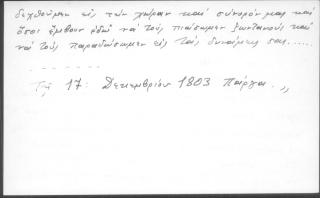 δεχθοῦμεν εἰς τὴν χώραν καὶ σύνορόν μας καὶ
ὅσοι ἔλθουν ἐδῶ νὰ τοὺς πιάσωμεν ζωντανοὺς καὶ
νὰ τοὺς παραδώσωμεν εἰς τὰς δυνάμεις σας.....
- - - - - -
Τῇ 17: Δεκεμβρίου 1803 Πάργα.,,